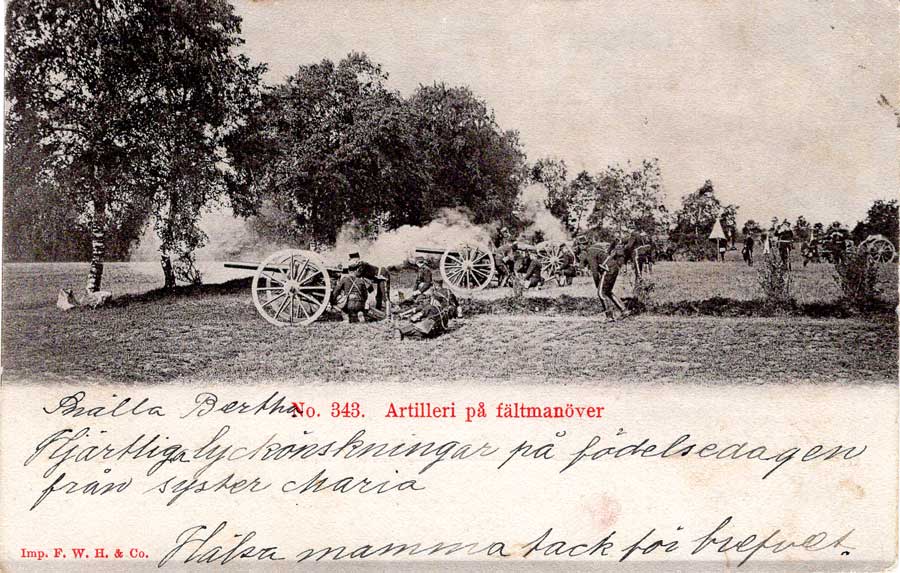 Snälla Bertha
No. 343. Artilleri på fältmanöver
Hjärtliga lyckönskningar på födelsedagen
från syster Maria
Hälsa mamma tack för brefvet.
Imp. F. W. H. & Co.